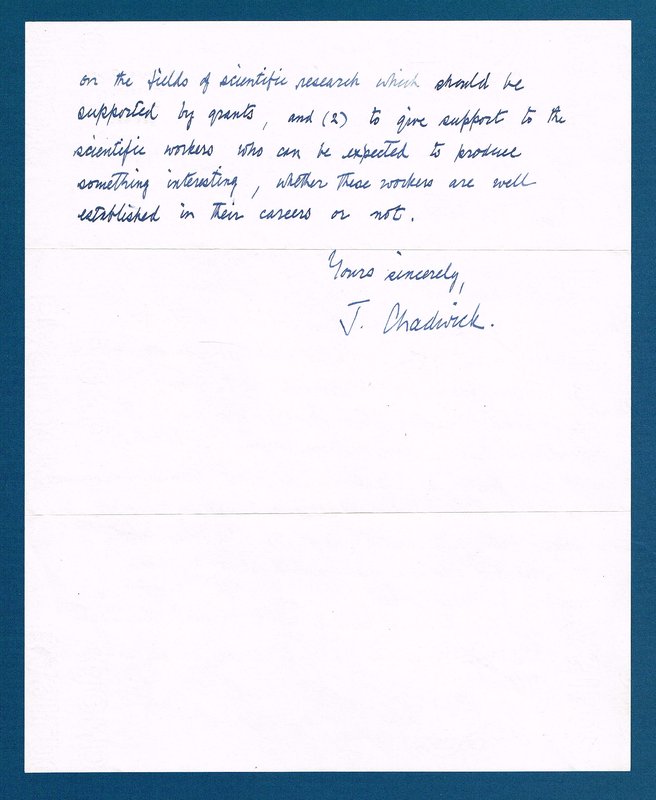 on the fields of scientific research which should be
supported by grants, and (2) to give support to the
scientific workers who can be expected to produce
something interesting, whether these workers are well
established in their careers or not.
Yours sincerely,
J. Chadwick.